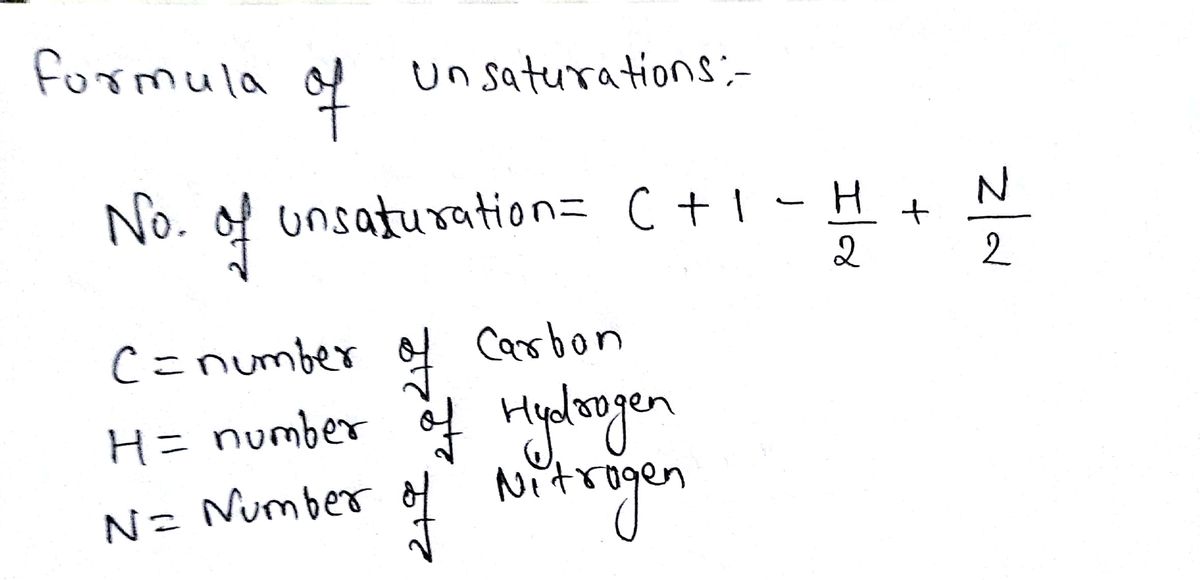 Formula of Unsaturations:-
No. of unsaturation= C + 1 - H/2 + N/2
C = number of Carbon
H = number of Hydrogen
N = Number of Nitrogen